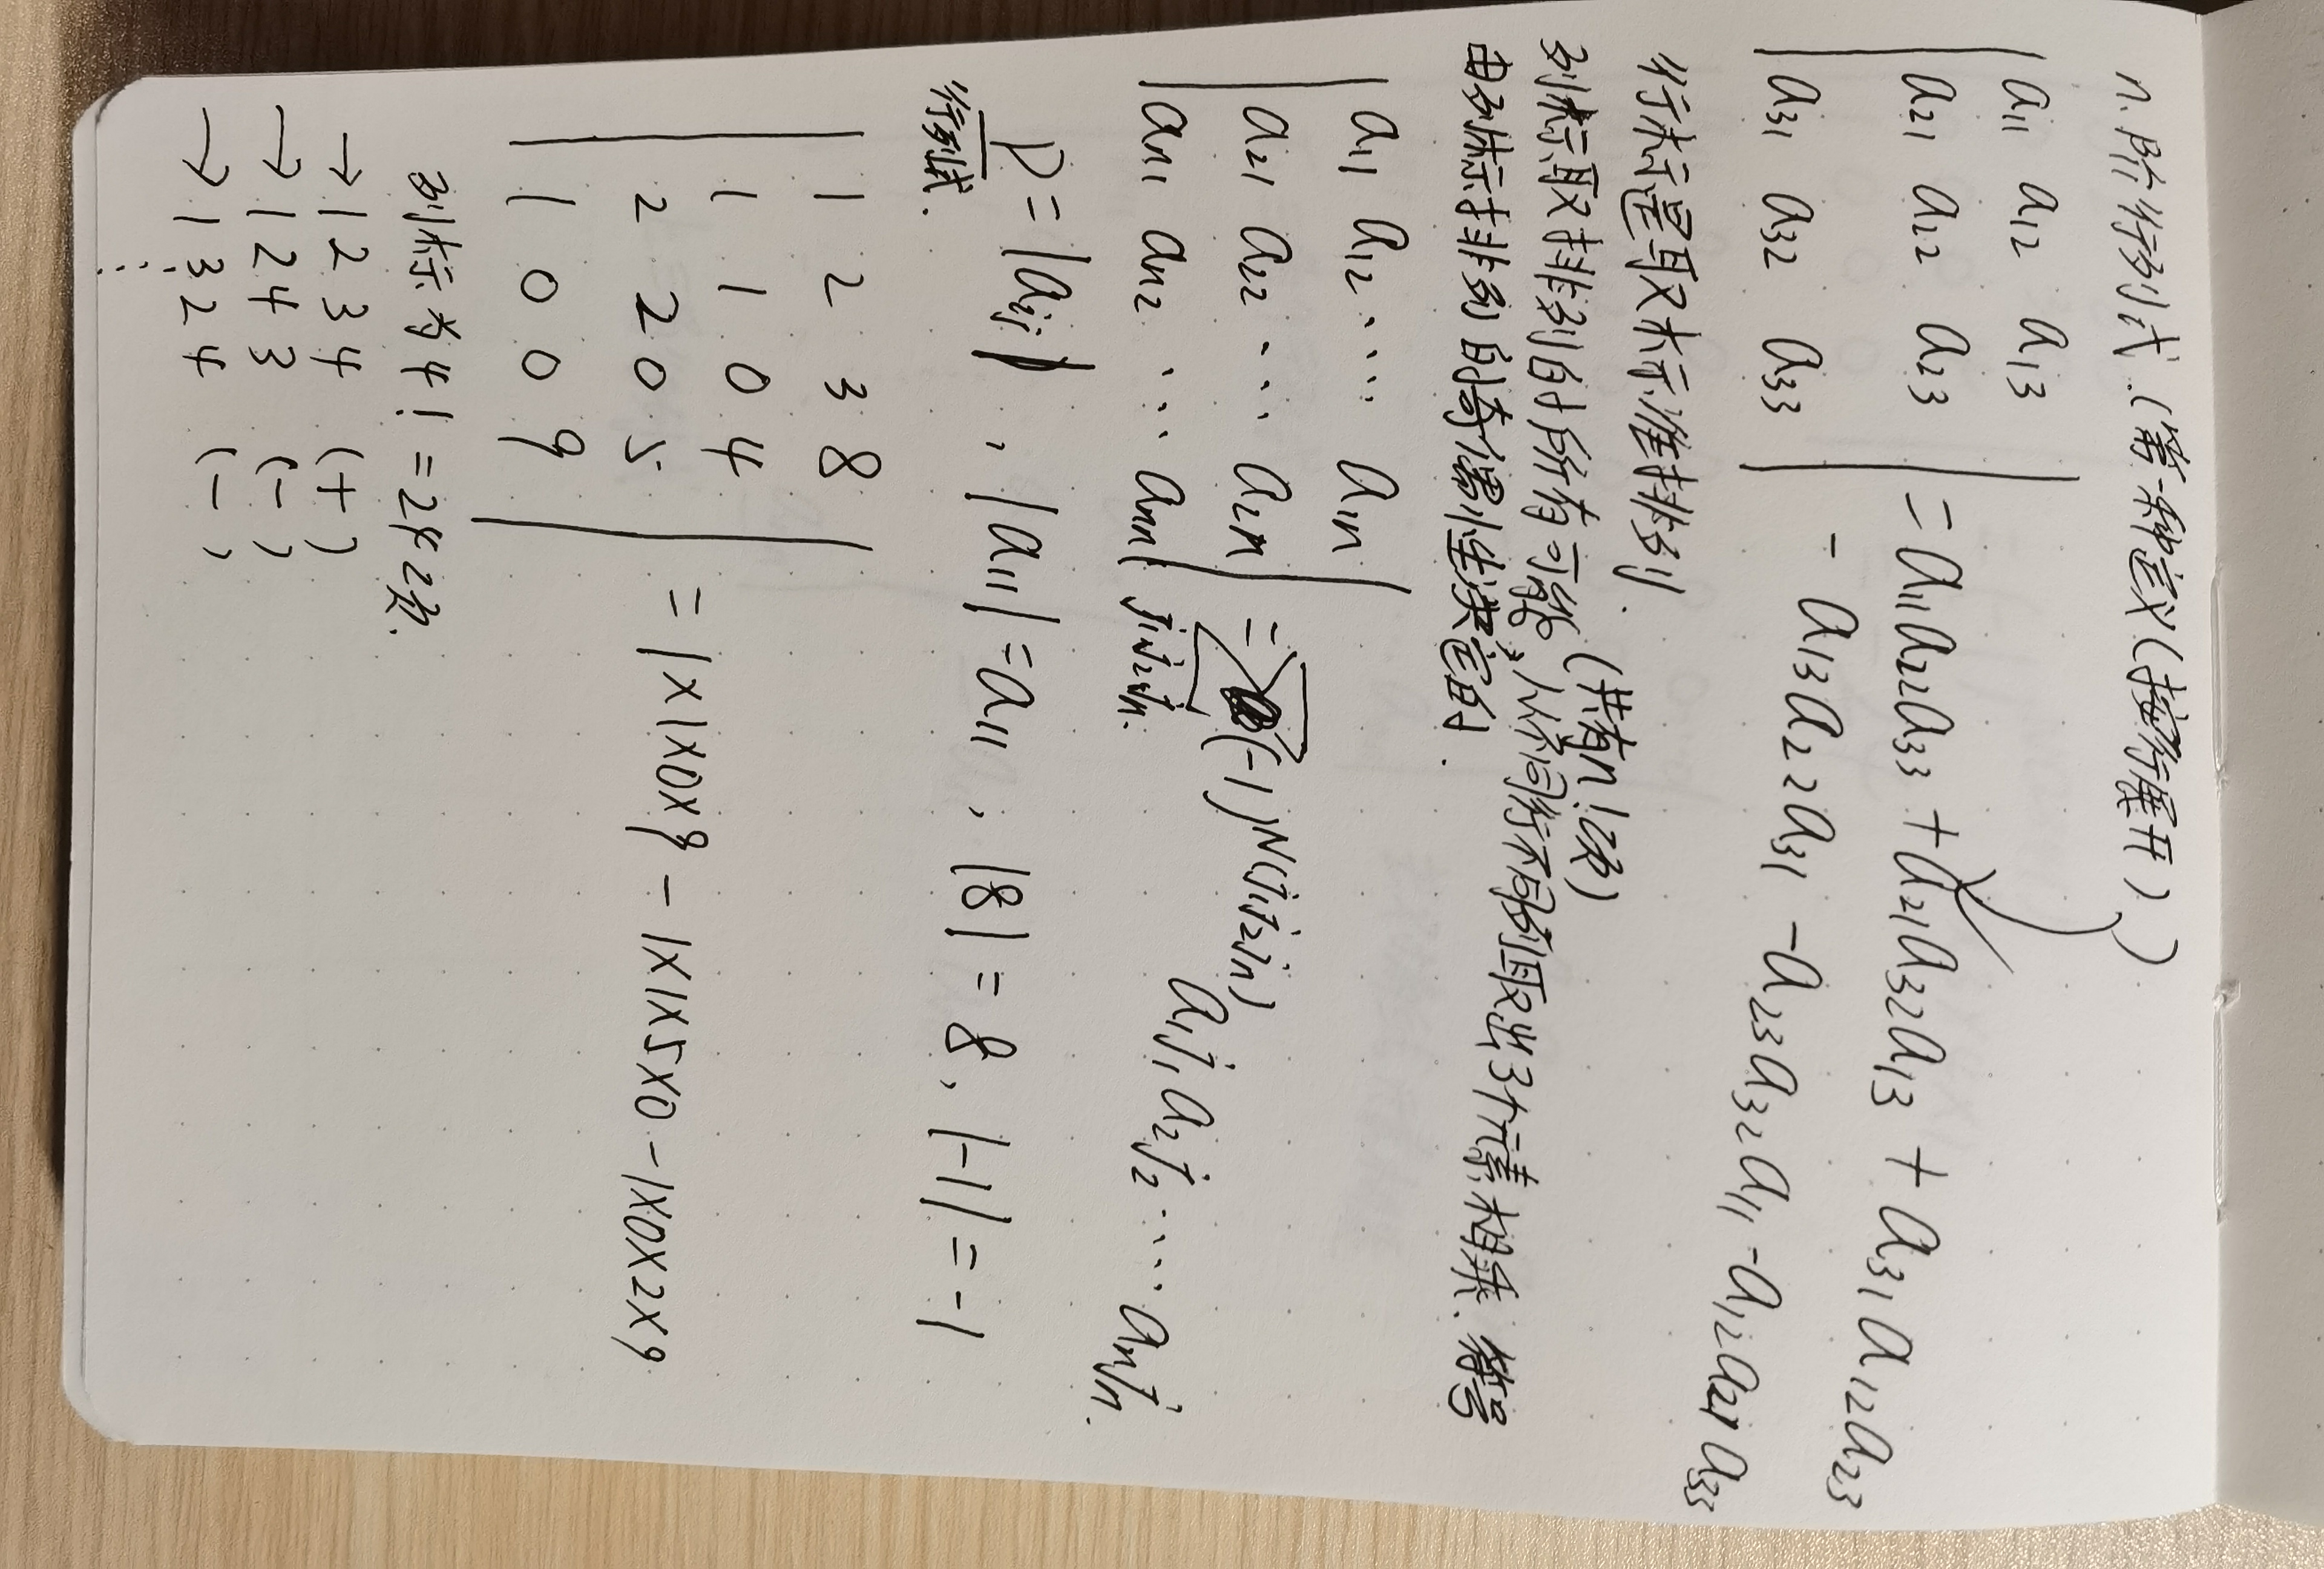 n阶行列式.(第一种定义(按行展开))
| a11 a12 a13 |
| a21 a22 a23 | = a11a22a33 + a21a32a13 + a31a12a23
| a31 a32 a33 | - a13a22a31 - a23a32a11 - a12a21a33
行标是取标准排列.
列标取排列的所有可能(共有n!次),从不同行不同列取出3个元素相乘.符号
由列标排列的奇偶性决定的.
| a11 a12 ... a1n |
| a21 a22 ... a2n | = Σ(-1)N(j1j2jn) a1j1a2j2...anjn.
| an1 an2 ... ann | j1j2jn.
D = |aij| , |a11| = a11 , |8| = 8, |-1| = -1
行列式.
| 1 2 3 8 |
| 1 1 0 4 |
| 2 2 0 5 | = 1×1×0×9 - 1×1×5×0 - 1×0×2×9
| 1 0 0 9 |
列标为4! = 24次.
→ 1 2 3 4 (+)
→ 1 2 4 3 (-)
→ 1 3 2 4 (-)
⋮